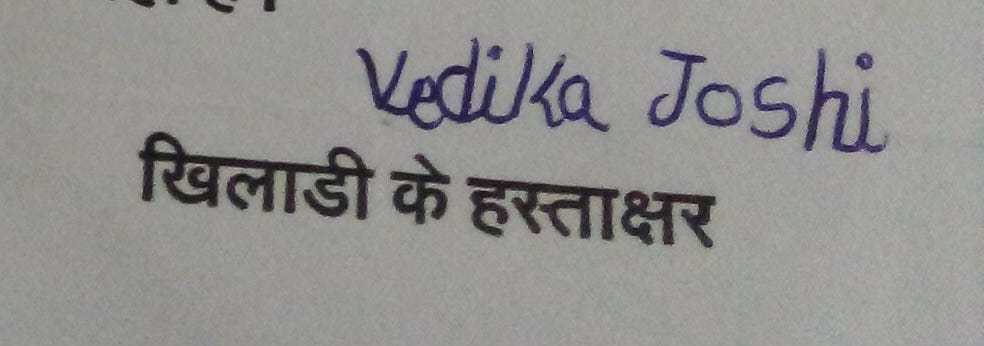 Vedika Joshi
खिलाडी के हस्ताक्षर